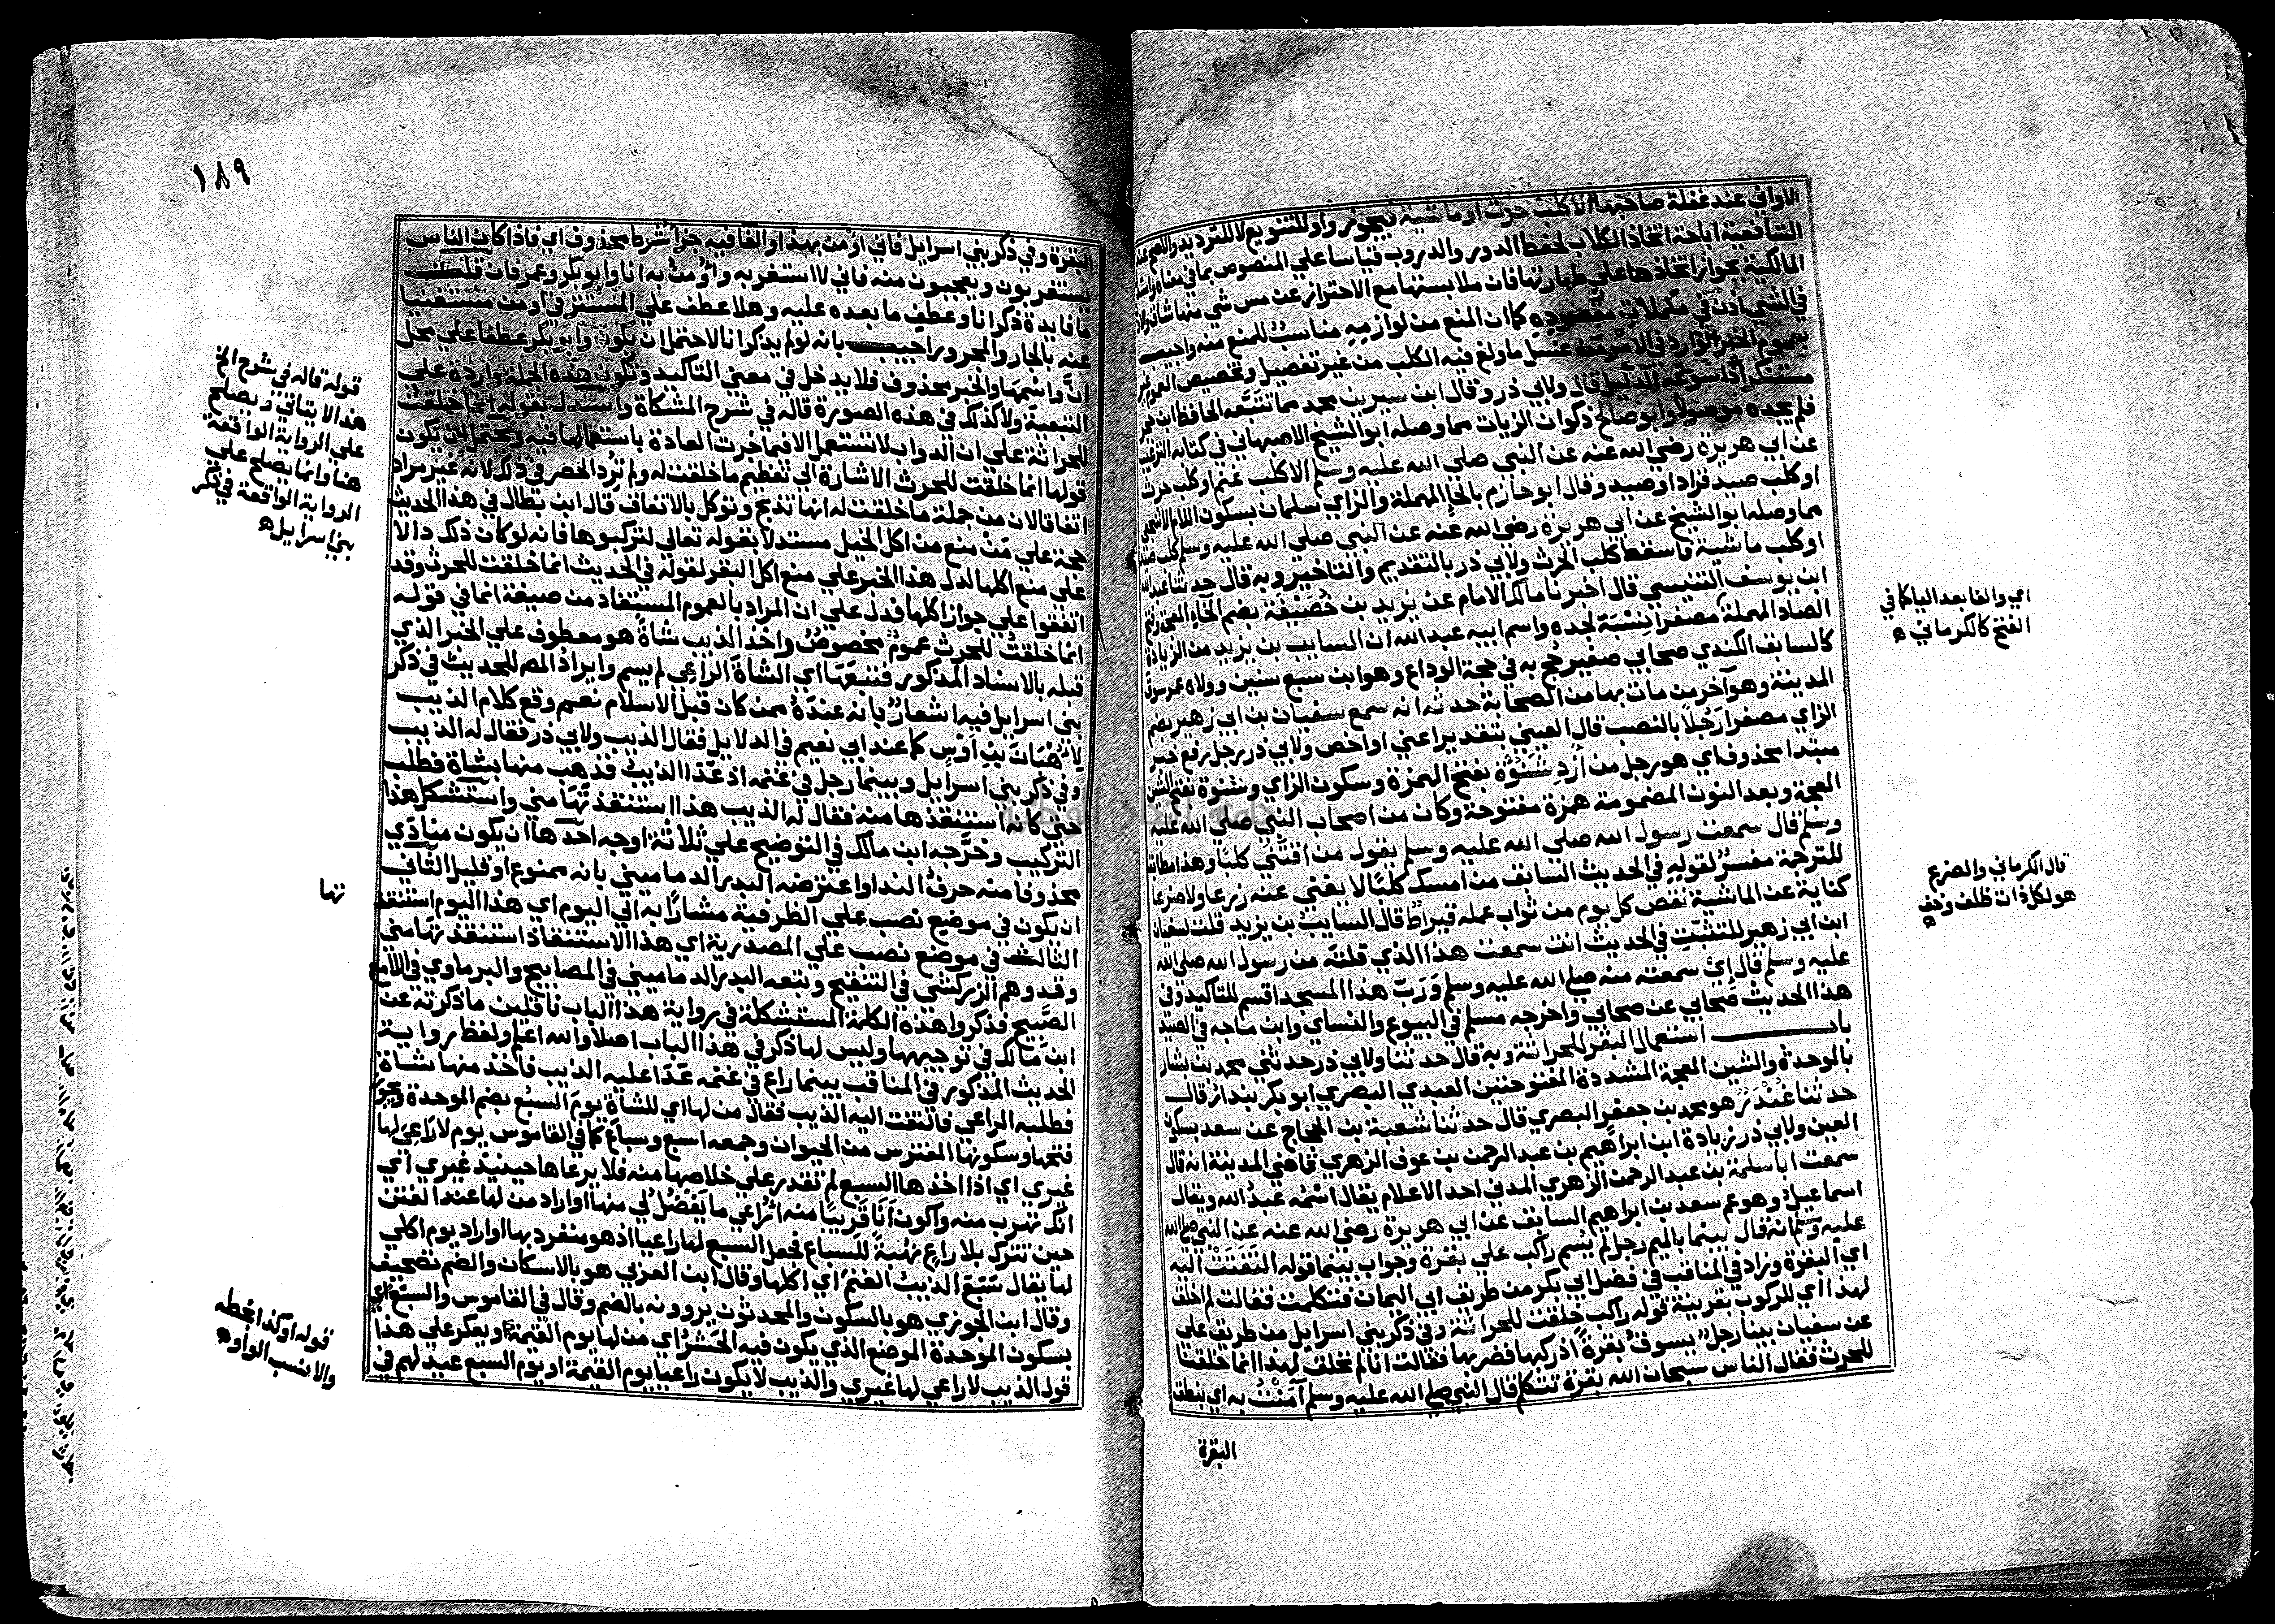 الاواني عند غفلة صاحبها الا كلب حرث او ماشية فيجوز واو للتنويع لا للترديد والاصح عند
الشافعية اباحة اتخاذ الكلاب لحفظ الدور والدروب قياسا علي المنصوص بما في معناه واستدل
المالكية بجواز اتخاذها علي طهارتها فان ملابستها مع الاحتراز عن مس شي منها شاق والاذن
في الشي اذن في مكملات مقصوده كما ان المنع من لوازمه مناسب للمنع منه واجيب
بعموم الخبر الوارد في الامر من غسل ما ولغ فيه الكلب من غير تفصيل وتخصيص العموم غير
مستنكر اذا سوغه الدليل قال ولابي ذر وقال ابن سيرين محمد مما تتبعه الحافظ ابن حجر
فلم يجده موصولا وابو صالح ذكوان الزيات مما وصله ابو الشيخ الاصبهاني في كتابه الترغيب
عن ابي هريرة رضي الله عنه عن النبي صلي الله عليه وسلم الا كلب غنم او كلب حرث
او كلب صيد فزاد او صيد وقال ابو حازم بالحا المهملة والزاي سلمان بسكون اللام الاشجعي
مما وصله ابو الشيخ عن ابي هريرة رضي الله عنه عن النبي صلي الله عليه وسلم كلب صيد
او كلب ماشية فاسقط كلب الحرث ولابي ذر بالتقديم والتاخير وبه قال حدثنا عبد الله
ابن يوسف التنيسي قال اخبرنا مالك الامام عن يزيد بن خصيفة بضم الخاء المعجمة وفتح
الصاد المهملة مصغرا نسبة لجده واسم ابيه عبد الله ان السايب بن يزيد من الزيادة
كالسابق الكندي صحابي صغير حج به في حجة الوداع وهو ابن سبع سنين وولاه عمر سوق
المدينة وهو آخر من مات بها من الصحابة حدثه انه سمع سفيان بن ابي زهير بضم
الزاي مصغرا رجلا بالنصب قال العيني بتقدير اعني او اخص ولابي ذر رجل رفع خبر
مبتدا محذوف اي هو رجل من ازد شنوءة بفتح الهمزة وسكون الزاي وشنوة بفتح الشين
المعجمة وبعد النون المضمومة همزة مفتوحة وكان من اصحاب النبي صلي الله عليه
وسلم قال سمعت رسول الله صلي الله عليه وسلم يقول من اقتنى كلبا وهذا مطابق
للترجمة مفسر لقوله في الحديث السابق من امسك كلبا لا يغني عنه زرعا ولا ضرعا
كناية عن الماشية نقص كل يوم من ثواب عمله قيراط قال السايب بن يزيد قلت لسفيان
ابن ابي زهير للتثبت في الحديث انت سمعت هذا الذي قلته من رسول الله صلي الله
عليه وسلم قال اي سمعته منه صلي الله عليه وسلم ورب هذا المسجد اقسم للتاكيد وفي
هذا الحديث صحابي عن صحابي واخرجه مسلم في البيوع والنساي وابن ماجه في الصيد
باب استعمال البقر للحراثة وبه قال حدثنا ولابي ذر حدثني محمد بن بشار
بالوحدة والشين المعجمة المشددة المفتوحتين العبدي البصري ابو بكر بندار قال
حدثنا غندر هو محمد بن جعفر البصري قال حدثنا شعبة بن الحجاج عن سعد بسكون
العين ولابي ذر زيادة ابن ابراهيم بن عبد الرحمن بن عوف الزهري قاضي المدينة انه قال
سمعت ابا سلمة بن عبد الرحمن الزهري المدني احد الاعلام يقال اسمه عبد الله ويقال
اسماعيل وهو عم سعد بن ابراهيم السابق عن ابي هريرة رضي الله عنه عن النبي صلي الله
عليه وسلم انه قال بينما بالميم رجل لم يسم راكب علي بقرة وجواب بينما قوله التفتت اليه
اي البقرة وزاد في المناقب في فضل ابي بكر من طريق ابي اليمان فتكلمت فقالت لم اخلق
لهذا اي للركوب بقرينة قوله راكب خلقت للحراثة وفي ذكر بني اسرايل من طريق علي
عن سفيان بينا رجل يسوق بقرة اذ ركبها فضربها فقالت انا لم نخلق لهذا انما خلقنا
للحرث فقال الناس سبحان الله بقرة تتكلم قال النبي صلي الله عليه وسلم آمنت به اي بنطق
البقرة
اي والفا بعد الياء كما في
الفتح كالكرماني ه
قال الكرماني والضرع
هو لكل ذات ظلف وخف
ه
١٨٩
البقرة وفي ذكر بني اسرايل فاني اومن بهذا والفا فيه جزا شرط محذوف اي فاذا كان الناس
يستغربون ويعجبون منه فاني لا استغربه واومن به انا وابو بكر وعمر فان قلت
ما فايدة ذكر انا وعطف ما بعده عليه وهلا عطف علي المستتر في اومن مستغنيا
عنه بالجار والمجرور اجيب بانه لو لم يذكر انا لاحتمل ان يكون وابو بكر عطفا علي محل
ان واسمها والخبر محذوف فلا يدخل في معني التاكيد وتكون هذه الجملة واردة علي
التبعية ولا كذلك في هذه الصورة قاله في شرح المشكاة واستدل بقوله انما خلقت
للحراثة علي ان الدواب لا تستعمل الا فيما جرت العادة باستعمالها فيه ويحتمل ان يكون
قولها انما خلقت للحرث الاشارة الي تعظيم ما خلقت له ولم ترد الحصر في ذلك لانه غير مراد
اتفاقا لان من جملة ما خلقت له انها تذبح وتوكل بالاتفاق قال ابن بطال في هذا الحديث
حجة علي من منع من اكل الخيل مستدلا بقوله تعالي لتركبوها فانه لو كان ذلك دالا
علي منع اكلها لدل هذا الخبر علي منع اكل البقر لقوله في الحديث انما خلقت للحرث وقد
اتفقوا علي جواز اكلها فدل علي ان المراد بالعموم المستفاد من صيغة انما في قوله
انما خلقت للحرث عموم مخصوص واخذ الذيب شاة هو معطوف علي الخبر الذي
قبله بالاسناد المذكور فتبعها اي الشاة الراعي لم يسم وايراد المص للحديث في ذكر
بني اسرايل فيه اشعار بانه عنده ممن كان قبل الاسلام نعم وقع كلام الذيب
لاهبان بن اوس كما عند ابي نعيم في الدلايل فقال الذيب ولابي ذر فقال له الذيب
وفي ذكر بني اسرايل وبينما رجل في غنمه اذ عدا الذيب فذهب منها بشاة فطلب
حتي كانه استنقذها منه فقال له الذيب هذا استنقذتها مني واستشكل هذا
التركيب وخرجه ابن مالك في التوضيح علي ثلاثة اوجه احدها ان يكون منادي
محذوفا منه حرف الندا واعترضه البدر الدماميني بانه ممنوع او قليل الثاني
ان يكون في موضع نصب علي الظرفية مشارا به الي اليوم اي هذا اليوم استنقذ
الثالث في موضع نصب علي المصدرية اي هذا الاستنقاذ استنقذتها مني
وقد وهم الزركشي في التنقيح وتبعه البدر الدماميني في المصابيح والبرماوي في اللامع
الصبيح فذكروا هذه الكلمة المستشكلة في رواية هذا الباب ناقلين ما ذكرته عن
ابن مالك في توجيهها وليس لها ذكر في هذا الباب اصلا والله اعلم ولفظ رواية
الحديث المذكور في المناقب بينما راع في غنمه عدا عليه الذيب فاخذ منها شاة
فطلبه الراعي فالتفت اليه الذيب فقال من لها اي للشاة يوم السبع بضم الموحدة ويجوز
فتحها وسكونها المفترس من الحيوان وجمعه اسبع وسباع كما في القاموس يوم لا راعي لها
غيري اي اذا اخذها السبع لم تقدر علي خلاصها منه فلا يرعاها حينيذ غيري اي
انك تهرب منه واكون انا قريبا منه اراعي ما يفضل لي منها او اراد من لها عند الفتن
حين تترك بلا راع نهبة للسباع فجعل السبع لها راعيا اذ هو منفرد بها او اراد يوم اكلي
لها يقال سبع الذيب الغنم اي اكلها وقال ابن العربي هو بالاسكان والضم تصحيف
وقال ابن الجوزي هو بالسكون والمحدثون يروونه بالضم وقال في القاموس والسبع اي
بسكون الموحدة الموضع الذي يكون فيه الحشر اي من لها يوم القيمة او يعكر علي هذا
قول الذيب لا راعي لها غيري والذيب لا يكون راعيا يوم القيمة او يوم السبع عيد لهم في
قوله قاله في شرح الخ
هذا لا يتاتي ويصلح
علي الرواية الواقعة
هنا وانما يصلح علي
الرواية الواقعة في ذكر
بني اسرايل ه
تها
قوله او كذا بخطه
والانسب الواو ه